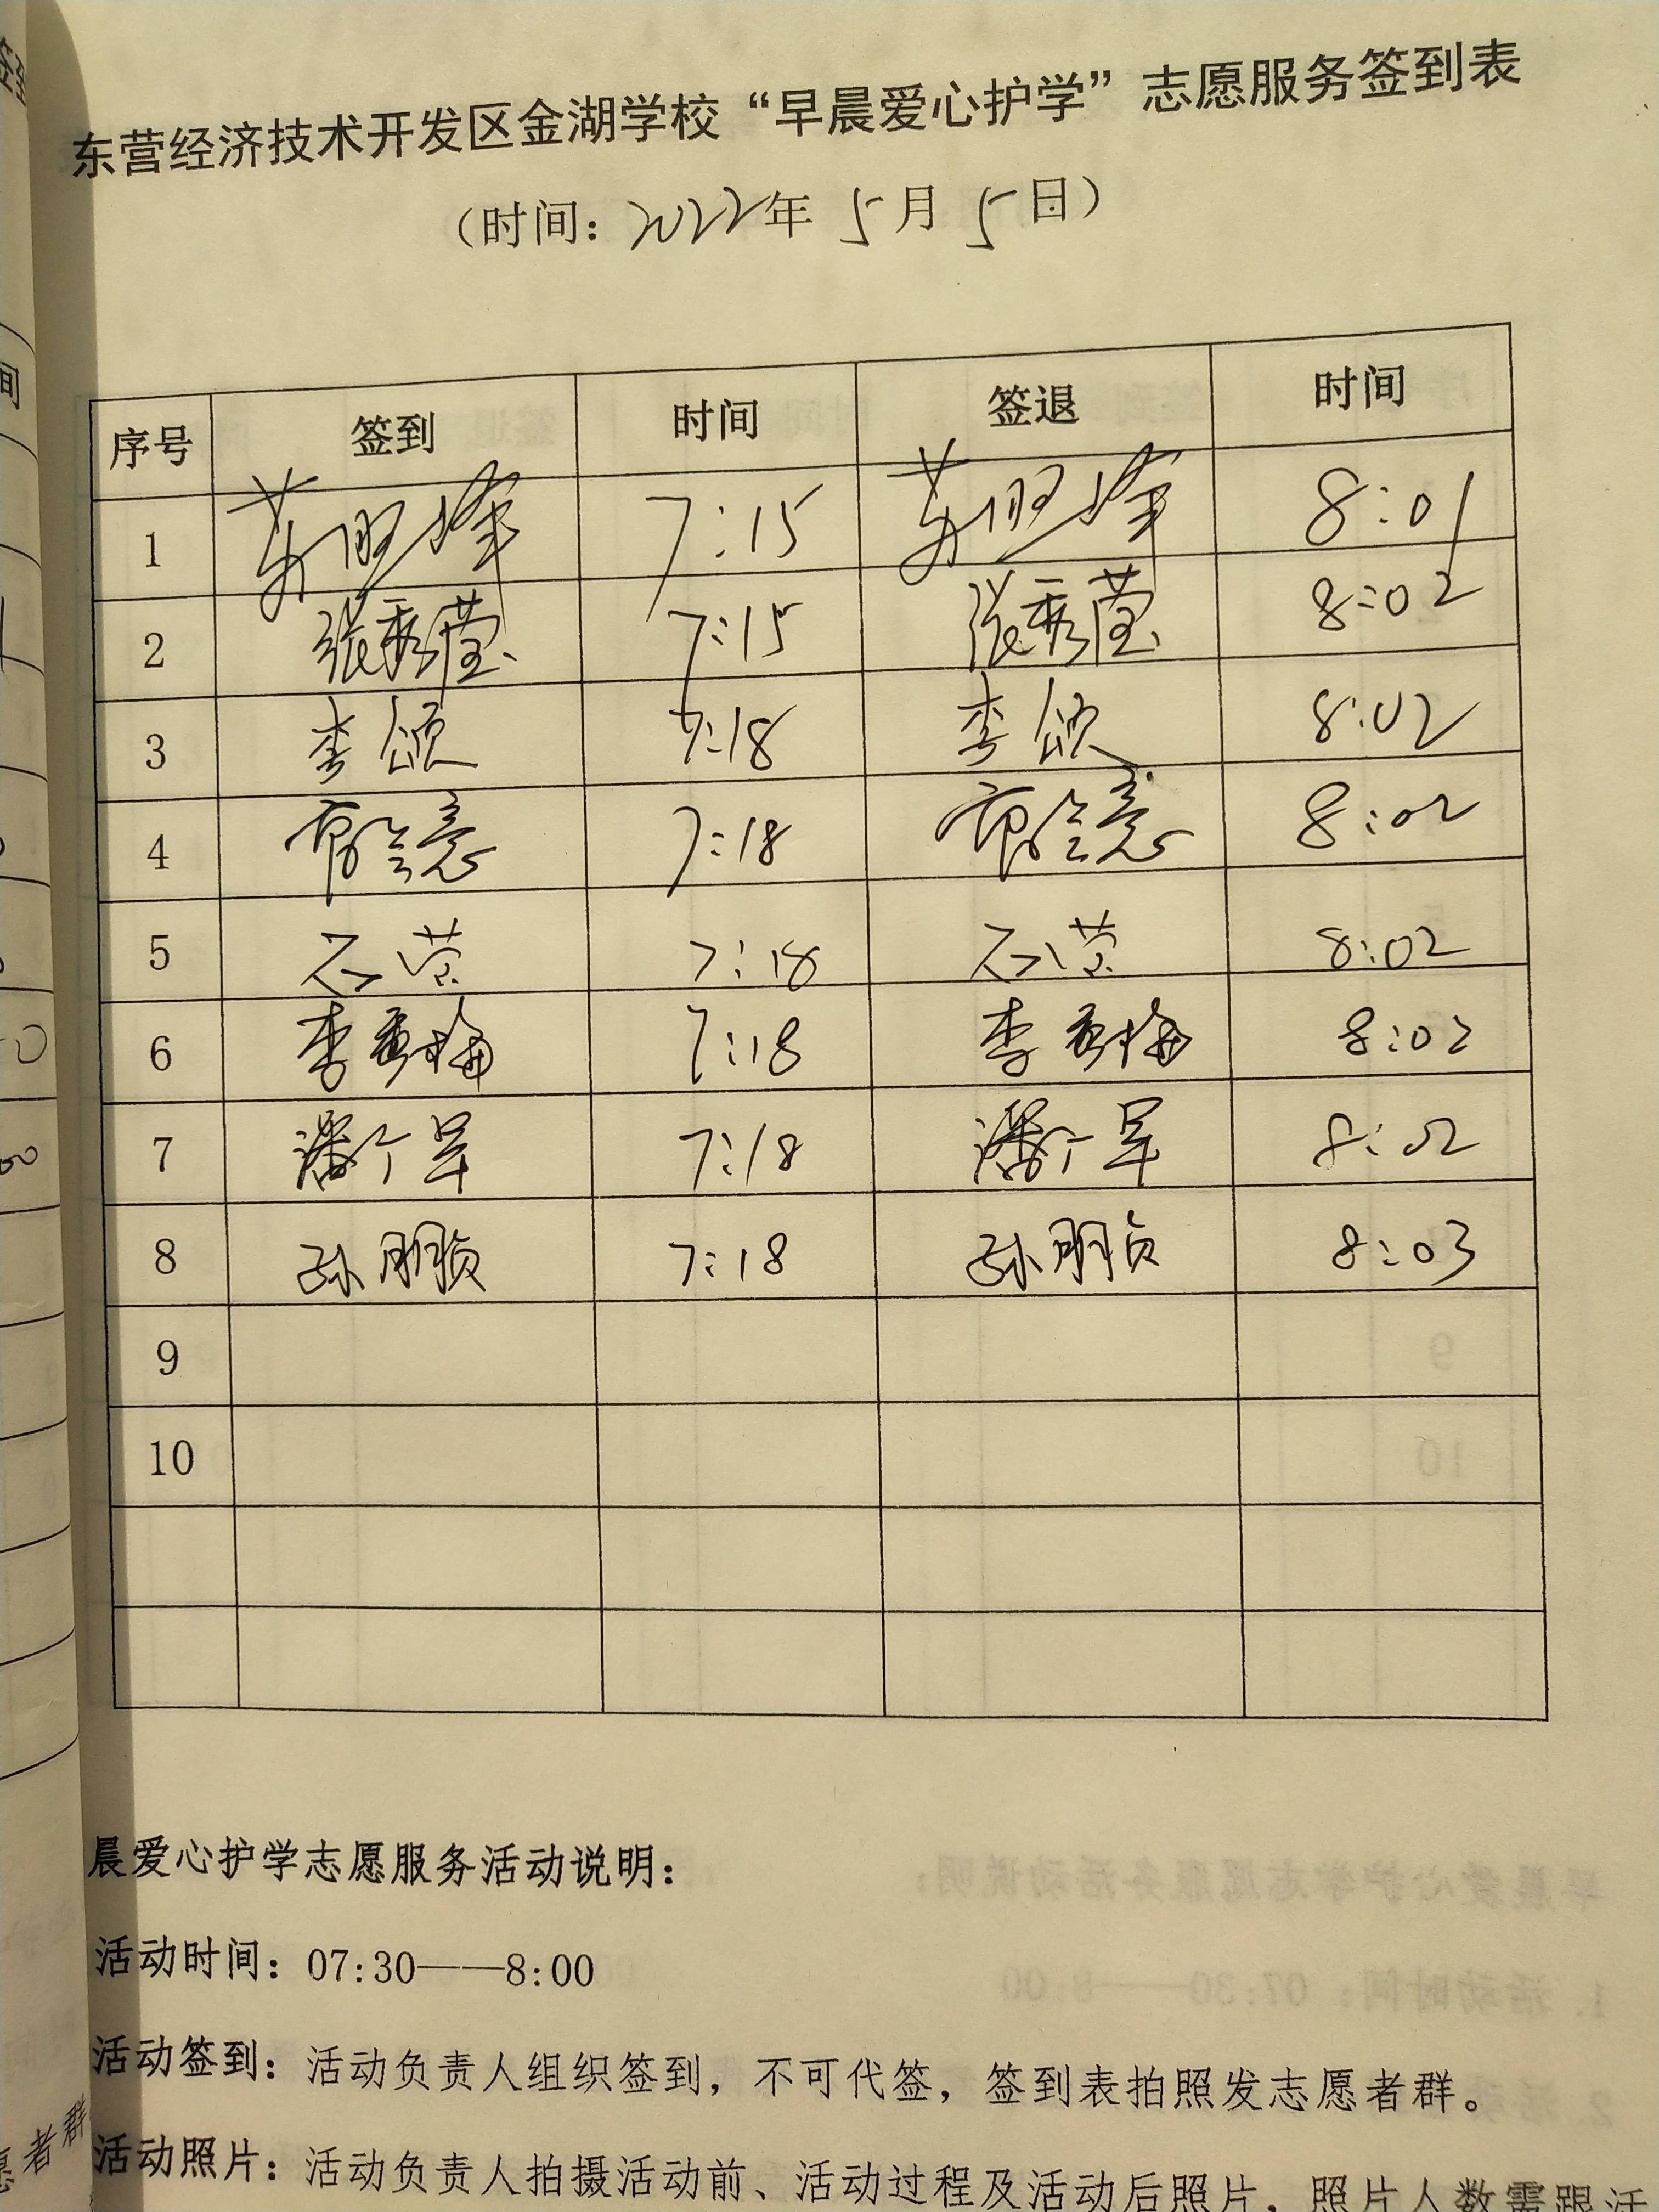 东营经济技术开发区金湖学校“早晨爱心护学”志愿服务签到表
(时间：2022年5月5日)
序号 签到 时间 签退 时间
1 7:15 8:01
2 张秀莹 7:15 张秀莹 8:02
3 李颂 7:18 李颂 8:02
4 7:18 8:02
5 石营 7:18 石营 8:02
6 李秀梅 7:18 李秀梅 8:02
7 潘广军 7:18 潘广军 8:02
8 孙朋贞 7:18 孙朋贞 8:03
9
10
晨爱心护学志愿服务活动说明：
活动时间：07:30——8:00
活动签到：活动负责人组织签到，不可代签，签到表拍照发志愿者群。
活动照片：活动负责人拍摄活动前、活动过程及活动后照片，照片人数需跟活